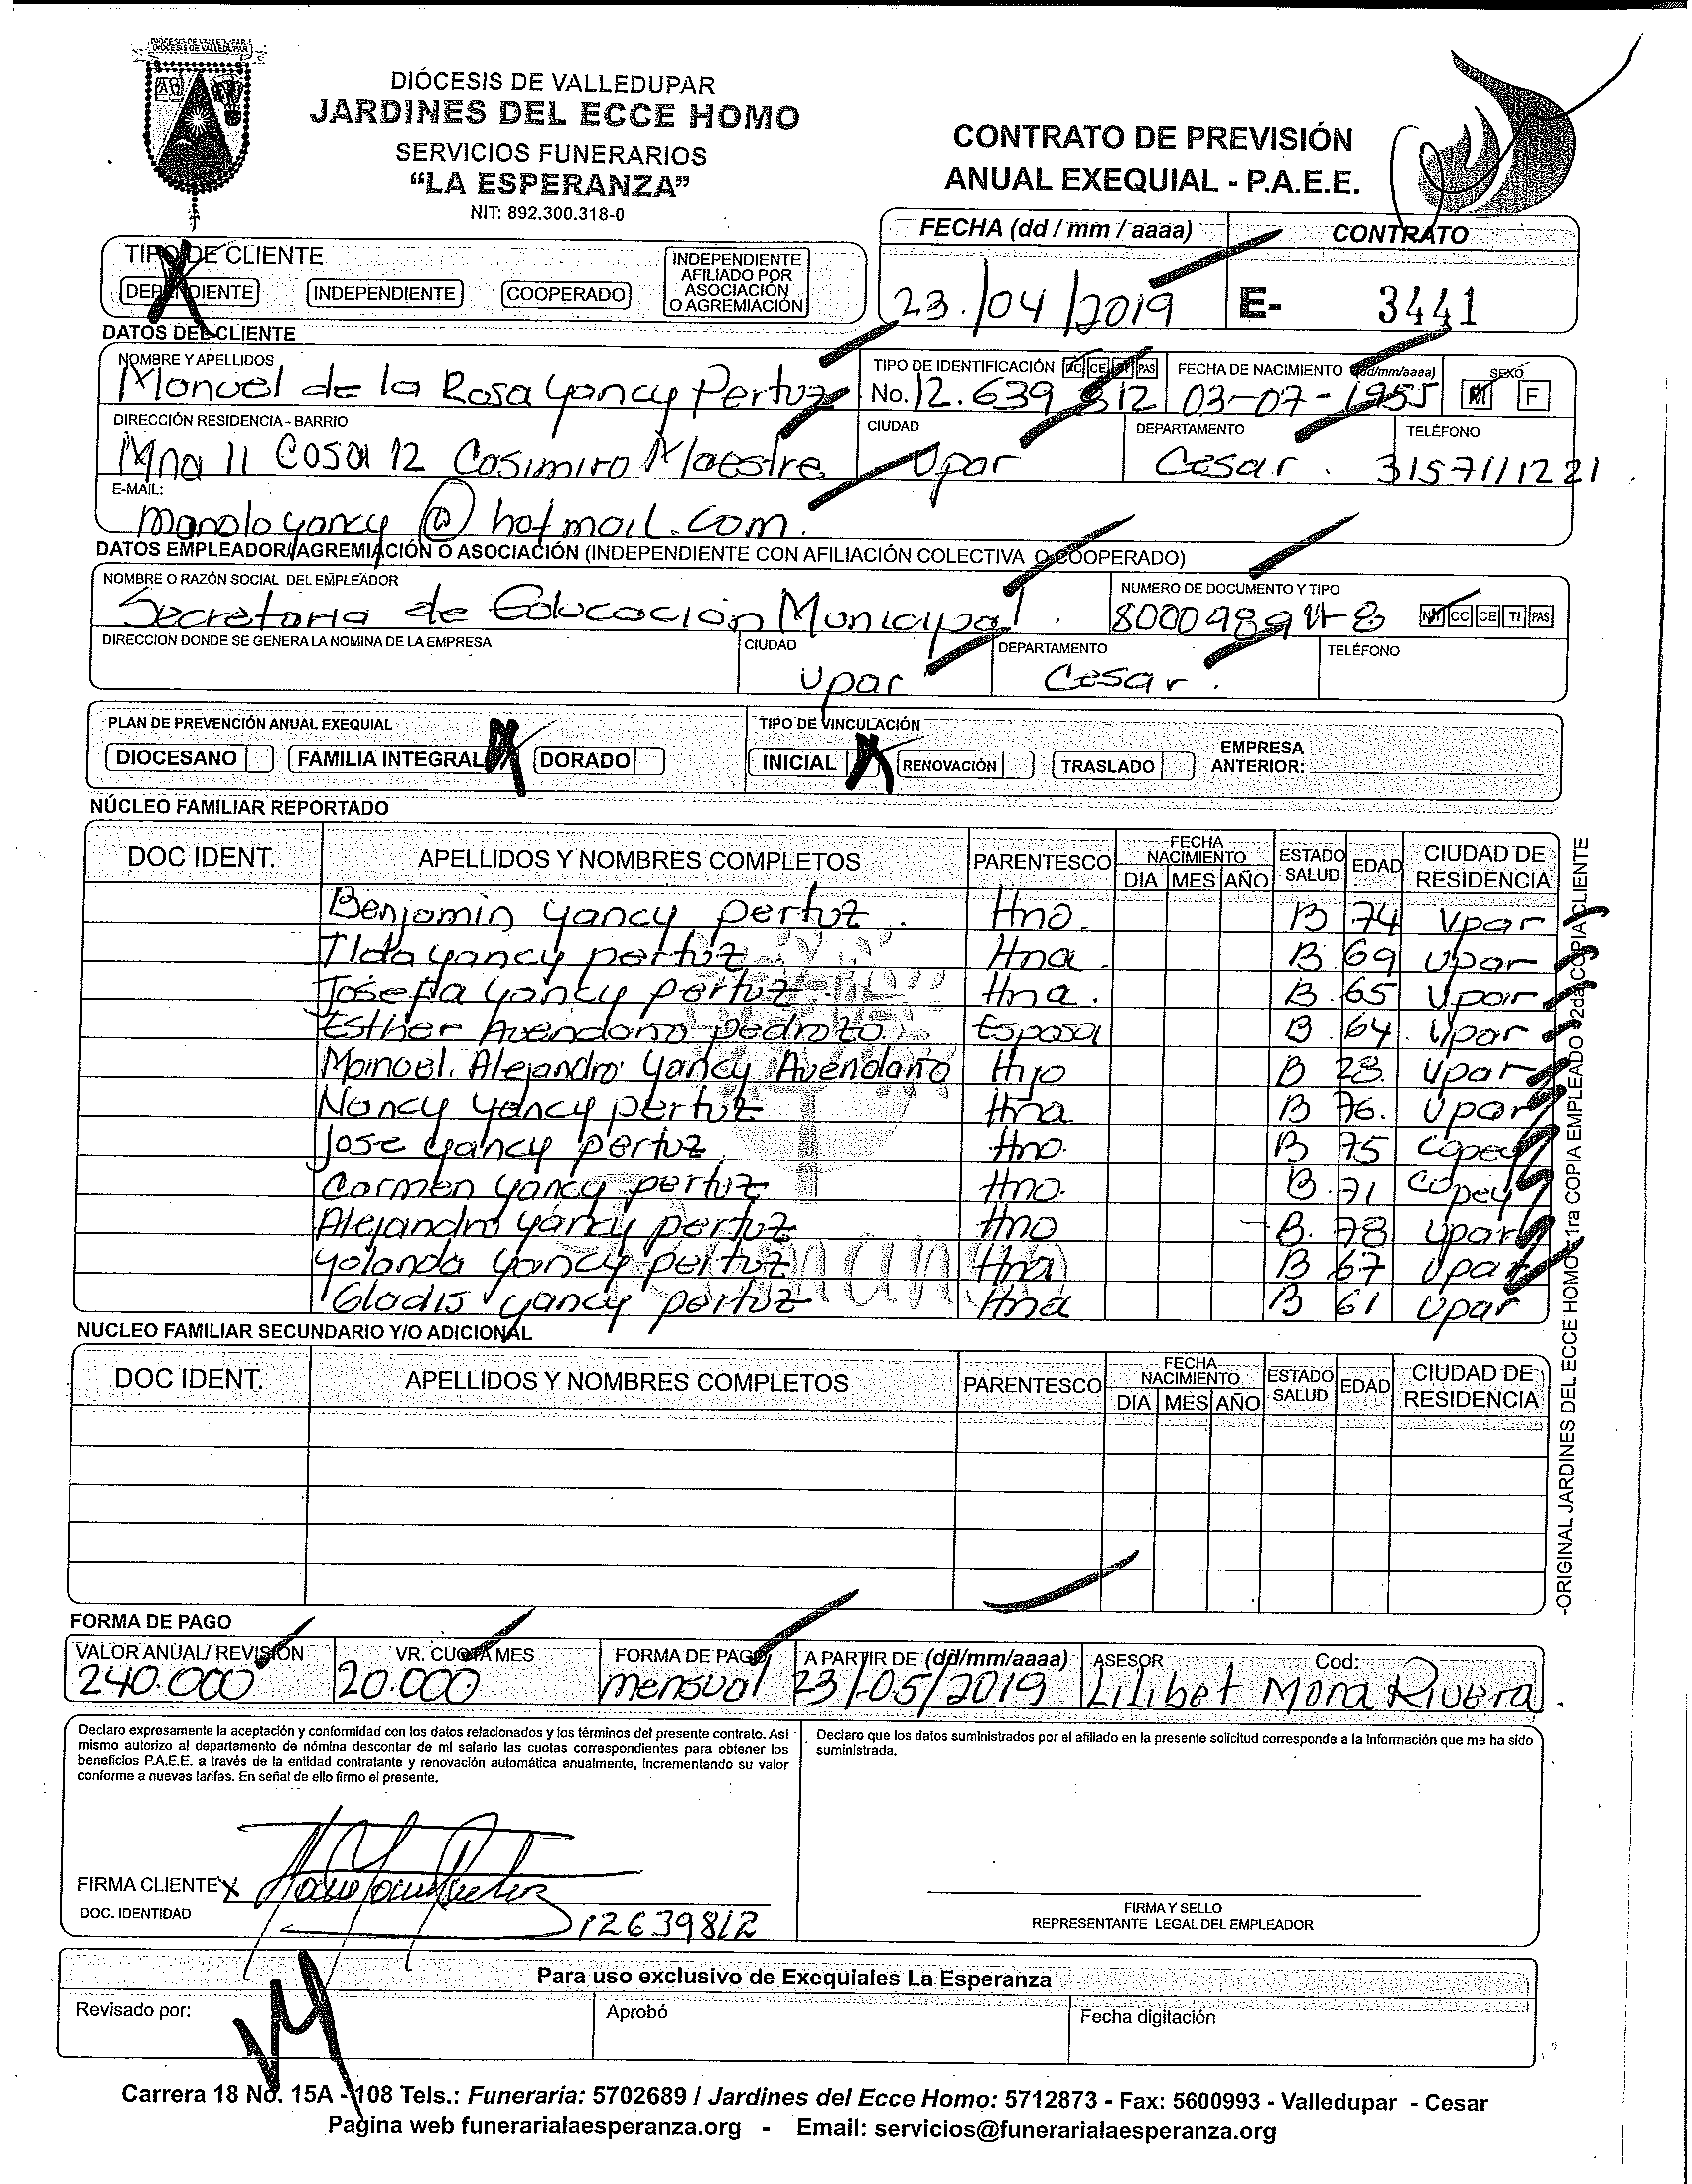 DIÓCESIS DE VALLEDUPAR
JARDINES DEL ECCE HOMO
SERVICIOS FUNERARIOS
“LA ESPERANZA”
NIT: 892.300.318-0
CONTRATO DE PREVISIÓN
ANUAL EXEQUIAL - P.A.E.E.
FECHA (dd / mm / aaaa) CONTRATO
23/04/2019 E- 3441
TIPO DE CLIENTE
DEPENDIENTE INDEPENDIENTE COOPERADO INDEPENDIENTE AFILIADO POR ASOCIACIÓN O AGREMIACIÓN
DATOS DEL CLIENTE
NOMBRE Y APELLIDOS TIPO DE IDENTIFICACIÓN CC CE PAS FECHA DE NACIMIENTO (dd/mm/aaaa) SEXO
Manuel de la Rosa Yancy Pertuz No. 12.639 812 03-07-1955 M F
DIRECCIÓN RESIDENCIA - BARRIO CIUDAD DEPARTAMENTO TELÉFONO
Mna 11 Casa 12 Casimiro Maestre Upar Cesar. 3157111221
E-MAIL:
manoloyancy@hotmail.com.
DATOS EMPLEADOR/AGREMIACIÓN O ASOCIACIÓN (INDEPENDIENTE CON AFILIACIÓN COLECTIVA O COOPERADO)
NOMBRE O RAZÓN SOCIAL DEL EMPLEADOR NUMERO DE DOCUMENTO Y TIPO
Secretaria de Educacion Municipal. NIT CC CE TI PAS
DIRECCION DONDE SE GENERA LA NOMINA DE LA EMPRESA CIUDAD DEPARTAMENTO TELÉFONO
Upar Cesar.
PLAN DE PREVENCIÓN ANUAL EXEQUIAL TIPO DE VINCULACIÓN
DIOCESANO FAMILIA INTEGRAL DORADO INICIAL RENOVACIÓN TRASLADO EMPRESA ANTERIOR:
NÚCLEO FAMILIAR REPORTADO
DOC IDENT. APELLIDOS Y NOMBRES COMPLETOS PARENTESCO FECHA NACIMIENTO DIA MES AÑO ESTADO SALUD EDAD CIUDAD DE RESIDENCIA
Benjamin Yancy pertuz. Hno. B 74 Upar
Ilda yancy pertuz Hna. B 69 Upar
Josefa yancy pertuz Hna. B. 65 Upar
Esther Avendaño pedrozo Esposa B. 64. Upar
Manuel. Alejandro Yancy Avendaño Hijo B 28. Upar
Nancy Yancy pertuz Hna B 76. Upar
Jose yancy pertuz Hno. B 75 Copey
Carmen yancy pertuz Hno. B. 71 Copey
Alejandro yancy pertuz Hno B. 78 Upar
Yolanda yancy pertuz Hna B 67 Upar
Gladis yancy pertuz Hna B 61 Upar
NUCLEO FAMILIAR SECUNDARIO Y/O ADICIONAL
DOC IDENT. APELLIDOS Y NOMBRES COMPLETOS PARENTESCO FECHA NACIMIENTO DIA MES AÑO ESTADO SALUD EDAD CIUDAD DE RESIDENCIA
-ORIGINAL JARDINES DEL ECCE HOMO 1ra COPIA EMPLEADO 2da COPIA CLIENTE
FORMA DE PAGO
VALOR ANUAL/ REVISIÓN VR. CUOTA MES FORMA DE PAGO A PARTIR DE (dd/mm/aaaa) ASESOR Cod:
240.000 20.000 mensual 23/05/2019 Lilibet Mora Rivera.
Declaro expresamente la aceptación y conformidad con los datos relacionados y los términos del presente contrato. Asi
mismo autorizo al departamento de nómina descontar de mi salario las cuotas correspondientes para obtener los
beneficios P.A.E.E. a través de la entidad contratante y renovación automática anualmente, incrementando su valor
conforme a nuevas tarifas. En señal de ello firmo el presente.
Declaro que los datos suministrados por el afiliado en la presente solicitud corresponde a la Información que me ha sido
suministrada.
FIRMA CLIENTE X
DOC. IDENTIDAD 12639812
FIRMA Y SELLO
REPRESENTANTE LEGAL DEL EMPLEADOR
Para uso exclusivo de Exequiales La Esperanza
Revisado por: Aprobó Fecha digitación
Carrera 18 No. 15A - 108 Tels.: Funeraria: 5702689 / Jardines del Ecce Homo: 5712873 - Fax: 5600993 - Valledupar - Cesar
Pagina web funerarialaesperanza.org - Email: servicios@funerarialaesperanza.org